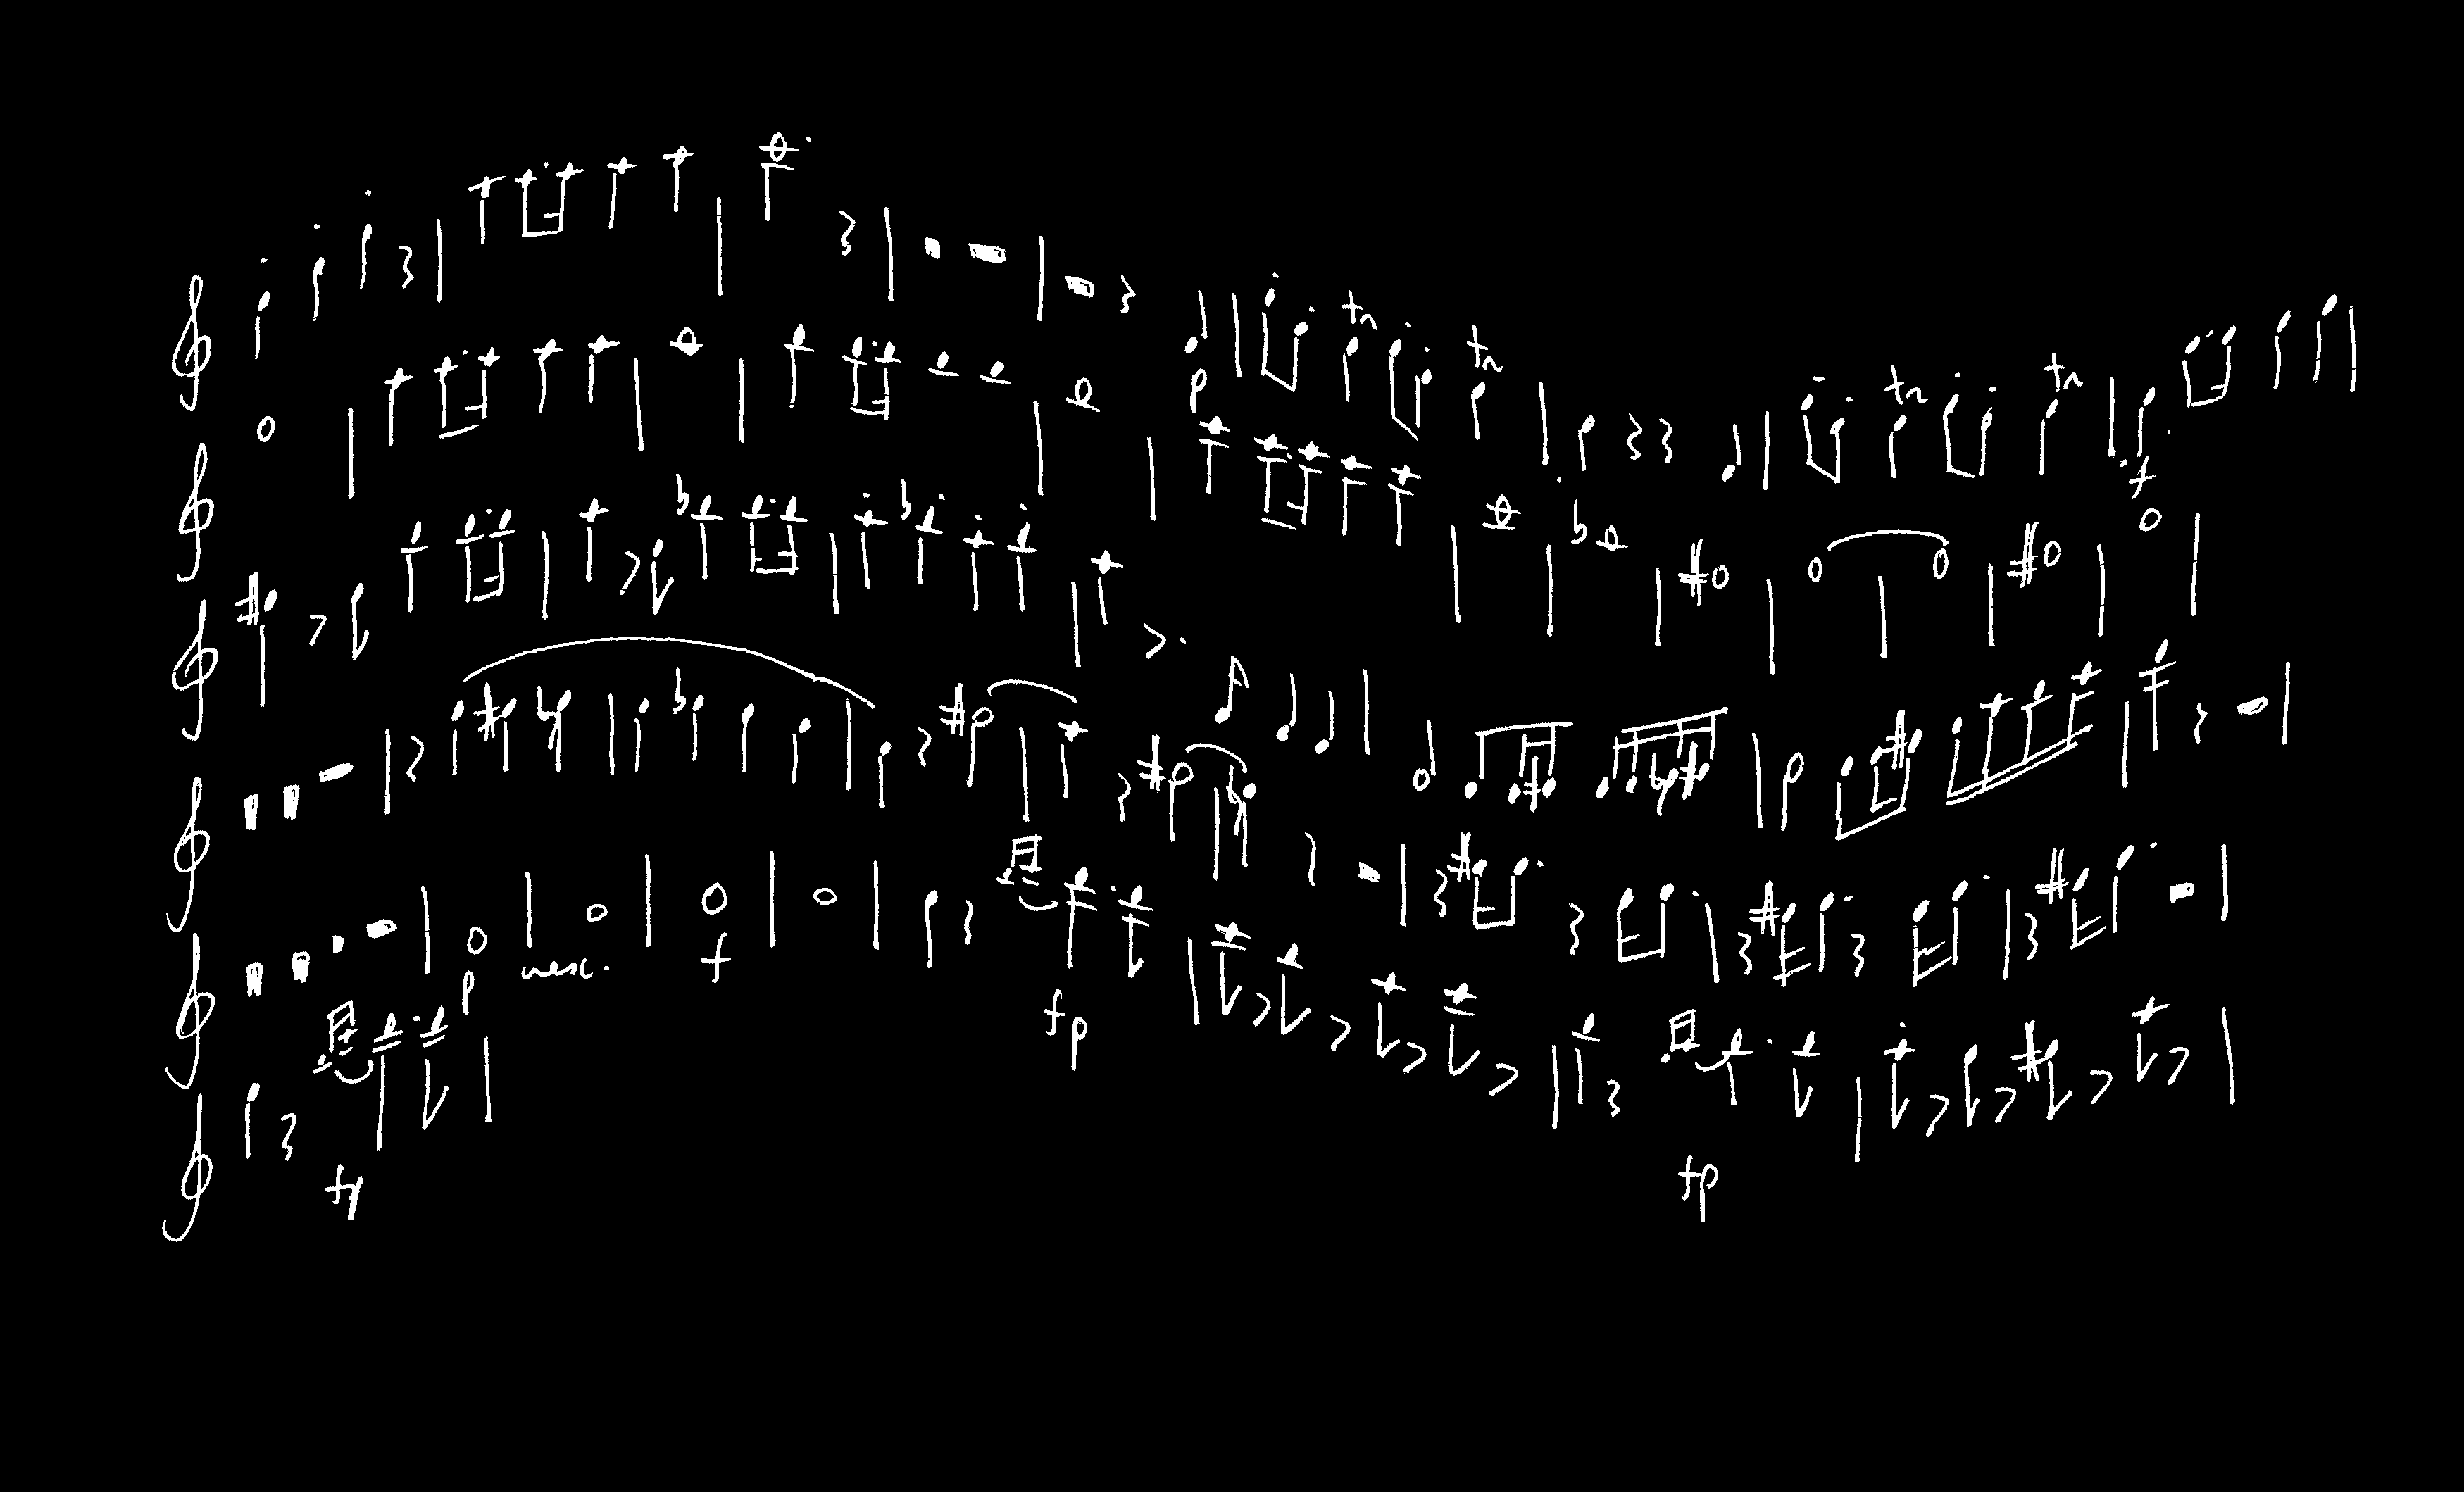 tr tr tr tr
p f
p cresc. f fp
fp fp